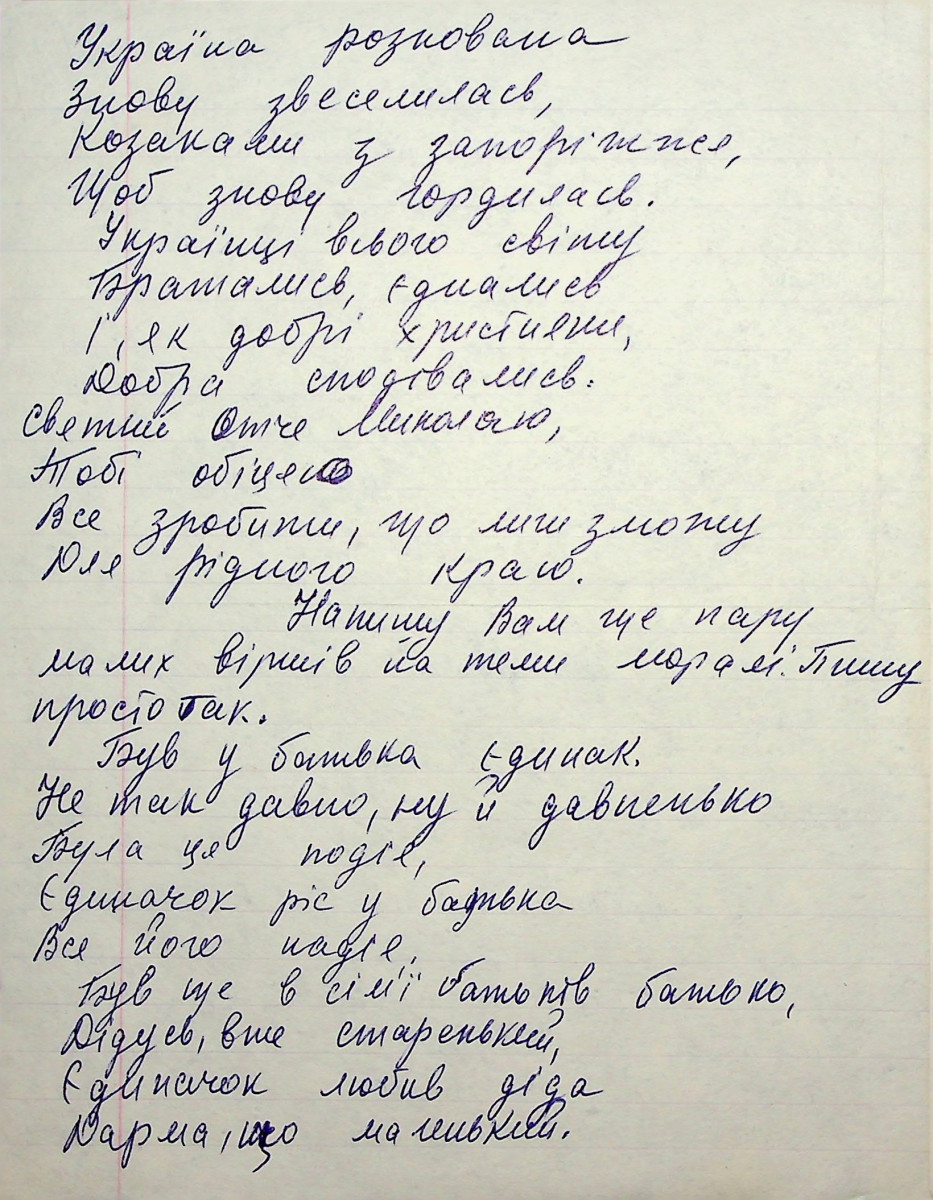 Україна розкована
Знову звеселилась,
Козаками з запоріжжя,
Щоб знову гордилась.
Українці всього світу
Братались, єднались
І, як добрі християни,
Добра сподівались.
Святий Отче Миколаю,
Тобі обіцяю
Все зробити, що лиш зможу
Для рідного краю.
Напишу Вам ще пару
малих віршів на теми моралі. Пишу
просто так.
Був у батька єдинак.
Не так давно, ну й давненько
Була ця подія,
Єдиначок ріс у батька
Вся його надія,
Був ще в сім'ї батьків батько,
Дідусь, вже старенький,
Єдиначок любив діда
Дарма, що маленький.